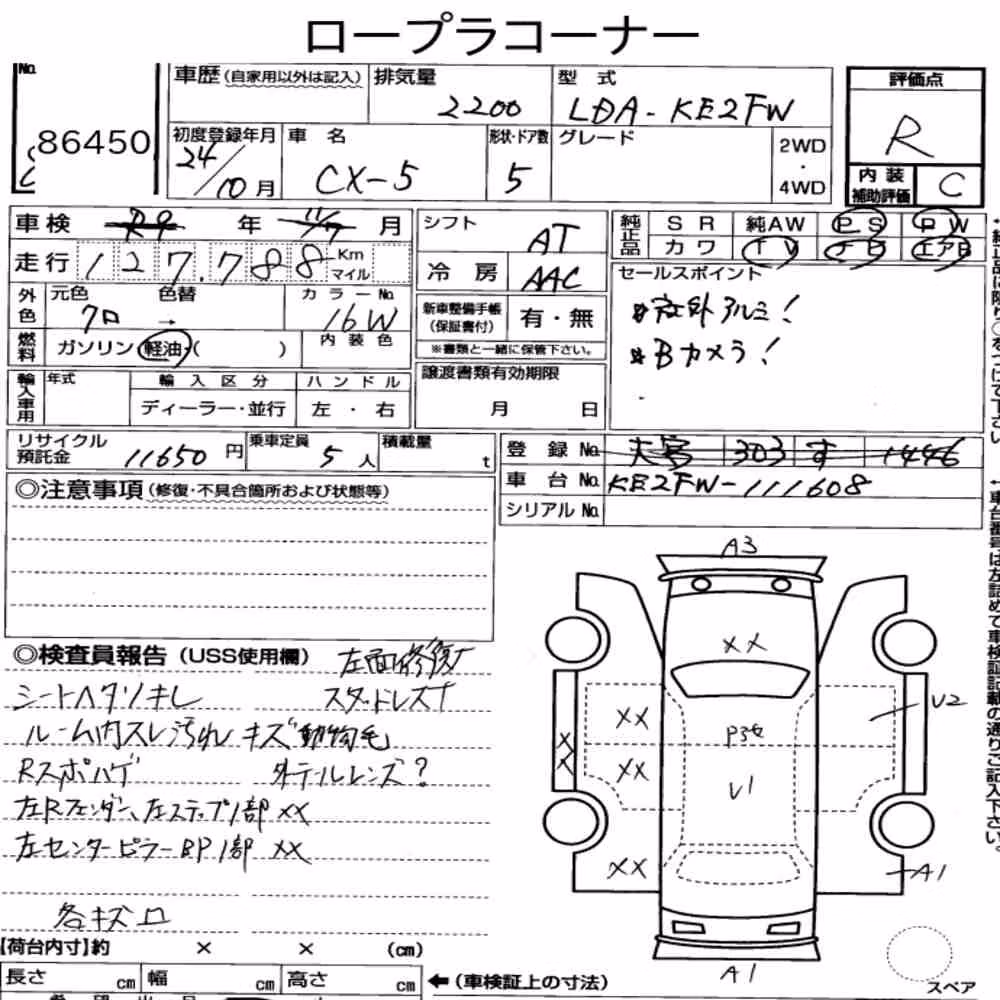 ロープラコーナー
No. 86450
車歴 (自家用以外は記入) 排気量 2200 型式 LDA-KE2FW
評価点 R
初度登録年月 24/10月 車名 CX-5 形状・ドア数 5 グレード 2WD・4WD
内装補助評価 C
車検 R9年 11/7月
シフト AT
純正品 SR 純AW PS PW
カワ TV エアB
走行 127.788 Km マイル
冷房 AAC
セールスポイント
*社外アルミ!
*Bカメラ!
外色 元色 クロ → 色替 カラーNo. 16W
新車整備手帳 (保証書付) 有・無
※書類と一緒に保管下さい。
燃料 ガソリン 軽油 ( ) 内装色
輸入車用 年式 輸入区分 ディーラー・並行 ハンドル 左・右
譲渡書類有効期限 月 日
リサイクル預託金 11650円 乗車定員 5人 積載量 t
登録No. 大宮 303 す 1446
車台No. KE2FW-111608
シリアルNo.
◎注意事項 (修復・不具合箇所および状態等)
◎検査員報告 (USS使用欄) 左面修復寸
シートヘタリキレ スタッドレス寸
ルーム内スレ汚れキズ動物毛
Rスポハゲ 外テールレンズ?
左Rフェンダー、左ステップ1部××
左センターピラーBP1部××
各キズ凹
【荷台内寸】約 × × (cm)
長さ cm 幅 cm 高さ cm
←(車検証上の寸法)
A3
××
××
××
××
××
P3セ
U1
U2
A1
A1
スペア
←純正品に限り○をつけて下さい
←車台番号は左詰めで車検証記載の通りご記入下さい。